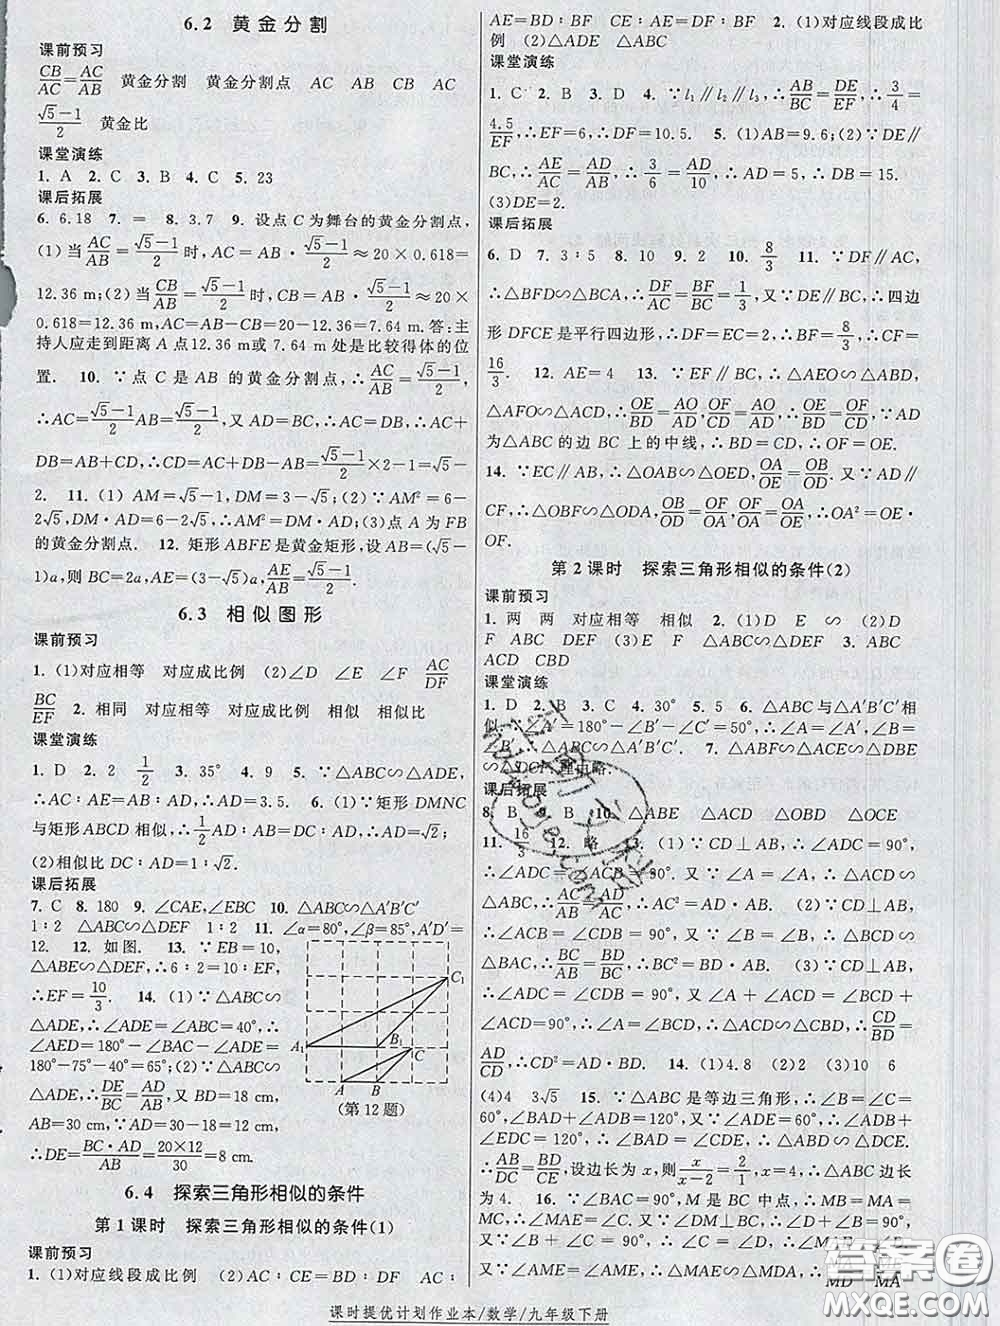 6.2 黄金分割
课前预习
CB/AC=AC/AB 黄金分割 黄金分割点 AC AB CB AC
(√5-1)/2 黄金比
课堂演练
1. A 2. C 3. B 4. C 5. 23
课后拓展
6. 6.18 7. = 8. 3.7 9. 设点 C 为舞台的黄金分割点,
(1) 当 AC/AB=(√5-1)/2 时, AC=AB×(√5-1)/2≈20×0.618=
12.36 m;(2) 当 CB/AB=(√5-1)/2 时, CB=AB×(√5-1)/2≈20×
0.618=12.36 m, AC=AB-CB=20-12.36=7.64 m. 答:主
持人应走到距离 A 点12.36 m或 7.64 m 处是比较得体的位
置. 10. ∵点 C 是 AB 的黄金分割点,∴AC/AB=(√5-1)/2,
∴AC=(√5-1)/2AB=(√5-1)/2×2=√5-1,∵AC=DB,∴DC+
DB=AB+CD,∴CD=AC+DB-AB=(√5-1)/2×2-1=√5-
2. 11. (1) AM=√5-1, DM=3-√5;(2)∵AM²=6-
2√5, DM·AD=6-2√5,∴AM²=DM·AD;(3)点 A 为 FB
的黄金分割点. 12. 矩形 ABFE 是黄金矩形,设 AB=(√5-
1)a,则 BC=2a, AE=(3-√5)a, AE/EF=(√5-1)/2.
6.3 相似图形
课前预习
1. (1)对应相等 对应成比例 (2)∠D ∠E ∠F AC/DF
BC/EF 2. 相同 对应相等 对应成比例 相似 相似比
课堂演练
1. D 2. 2 1/2 3. 35° 4. 9 5. ∵△ABC∽△AED,
∴AC:AE=AB:AD,∴AD=3.5. 6. (1)∵矩形 DMNC
与矩形 ABCD 相似,∴1/2AD:AB=AB:AD,∴AD=√2;
(2)相似比 DC:AD=1:√2.
课后拓展
7. C 8. 180 9. ∠CAE,∠EBC 10. △ABC∽△A′B′C′
1:2 △ABE∽△DEF 1:2 11. ∠α=80°,∠β=85°,A′D′=
12. 12. 如图. 13. ∵EB=10,
△ABE∽△DEF,∴6:2=10:EF,
∴EF=10/3. 14. (1)∵△ABC∽
△ADE,∴∠ADE=∠ABC=40°,∴
∠AED=180°-∠BAC-∠ADE=
180°-75°-40°=65°;(2)∵△ABC∽
△ADE,∴DE/BC=AD/AB,又∵BD=18 cm,
AB=30 cm,∴AD=30-18=12 cm,
∴DE=BC·AD/AB=20×12/30=8 cm.
C₁
A₁
B₁
C
A
B
(第12题)
6.4 探索三角形相似的条件
第 1 课时 探索三角形相似的条件(1)
课前预习
1. (1)对应线段成比例 (2)AC:CE=BD:DF AC:
AE=BD:BF CE:AE=DF:BF 2. (1)对应线段成比
例 (2)△ADE △ABC
课堂演练
1. C 2. B 3. D 4. ∵l₁∥l₂∥l₃,∴AB/BC=DE/EF,∴3/4=
4.5/EF,∴EF=6,∴DF=10.5. 5. (1)AB=9.6;(2)∵DE∥
BC,∴AE/AC=AD/AB,∴3/6=AD/10,∴AD=5,∴AD=15;
(3)DE=2.
课后拓展
6. D 7. 3:5 8. 10 9. 2 10. 8/3 11. ∵DF∥AC,
∴△BFD∽△BCA,∴DF/AC=BF/BC=1/3,又∵DE∥BC,∴四边
形 DFCE 是平行四边形,∴DF=EC=2,∴BF=8/3,∴CF=
16/3. 12. AE=4 13. ∵EF∥BC,∴△AEO∽△ABD,
△AFO∽△ACD,∴OE/BD=AO/AD,OF/CD=AO/AD,∴OE/BD=OF/CD,∵AD
为△ABC 的边 BC 上的中线,∴BD=CD,∴OF=OE.
14. ∵EC∥AB,∴△OAB∽△OED,OA/OE=OB/OD. 又∵AD∥
CF,∴△OBF∽△ODA,∴OB/OD=OF/OA,∴OA/OE=OF/OA,∴OA²=OE·
OF.
第 2 课时 探索三角形相似的条件(2)
课前预习
1. 两 两 对应相等 相似 2. (1)D E ∽ (2)D
F ABC DEF (3)E F △ABC △DEF 3. ABC
ACD CBD
课堂演练
1. D 2. B 3. C 4. 30° 5. 5 6. △ABC与△A′B′C′相
似.∵∠A′=180°-∠B′-∠C′=50°,∴∠A=∠A′,∠B=
∠B′,∴△ABC∽△A′B′C′. 7. △ABF∽△ACE∽△DBE
∽△DCF 理由略.
课后拓展
8. B 9. B 10. △ABE △ACD △OBD △OCE
11. 16/3 12. 略 13. (1)∵CD⊥AB,∴∠ADC=90°,
∴∠ADC=∠ACB=90°. 又∵∠A=∠A,∴△ACD∽
△ABC,∴AC/AB=AD/AC,∴AC²=AD·AB. (2)∵CD⊥AB,
∴∠ACB=∠CDB=90°. 又∵∠B=∠B,∴△ABC∽
△CBD,∴BC/BD=AB/BC,∴BC²=BD·AB. (3)∵CD⊥AB,
∴∠ADC=∠CDB=90°,又∵∠A+∠ACD=∠BCD+
∠ACD=90°,∴∠A=∠BCD,∴△ACD∽△CBD,∴CD/BD=
AD/CD,∴CD²=AD·BD. 14. (1)4.8 (2)2 (3)10 6
(4)4 3√5 15. ∵△ABC 是等边三角形,∴∠B=∠C=
60°,∴∠BAD+∠ADB=120°,又∵∠ADE=60°,∴∠ADB+
∠EDC=120°,∴∠BAD=∠CDE,∴△ABD∽△DCE.
∴AB/DC=BD/CE,设边长为 x,则 x/(x-2)=2/1,∴x=4,∴△ABC 边长
为 4. 16. ∵∠BAC=90°,M 是 BC 中点,∴MB=MA=
MC,∴∠B=∠BAM,又∵∠B+∠C=90°,∠E+∠C=90°,
∴∠AME=∠AME,∴△MAD∽△MEA,∴MD/MA=MA
课时提优计划作业本/数学/九年级下册
答案卷